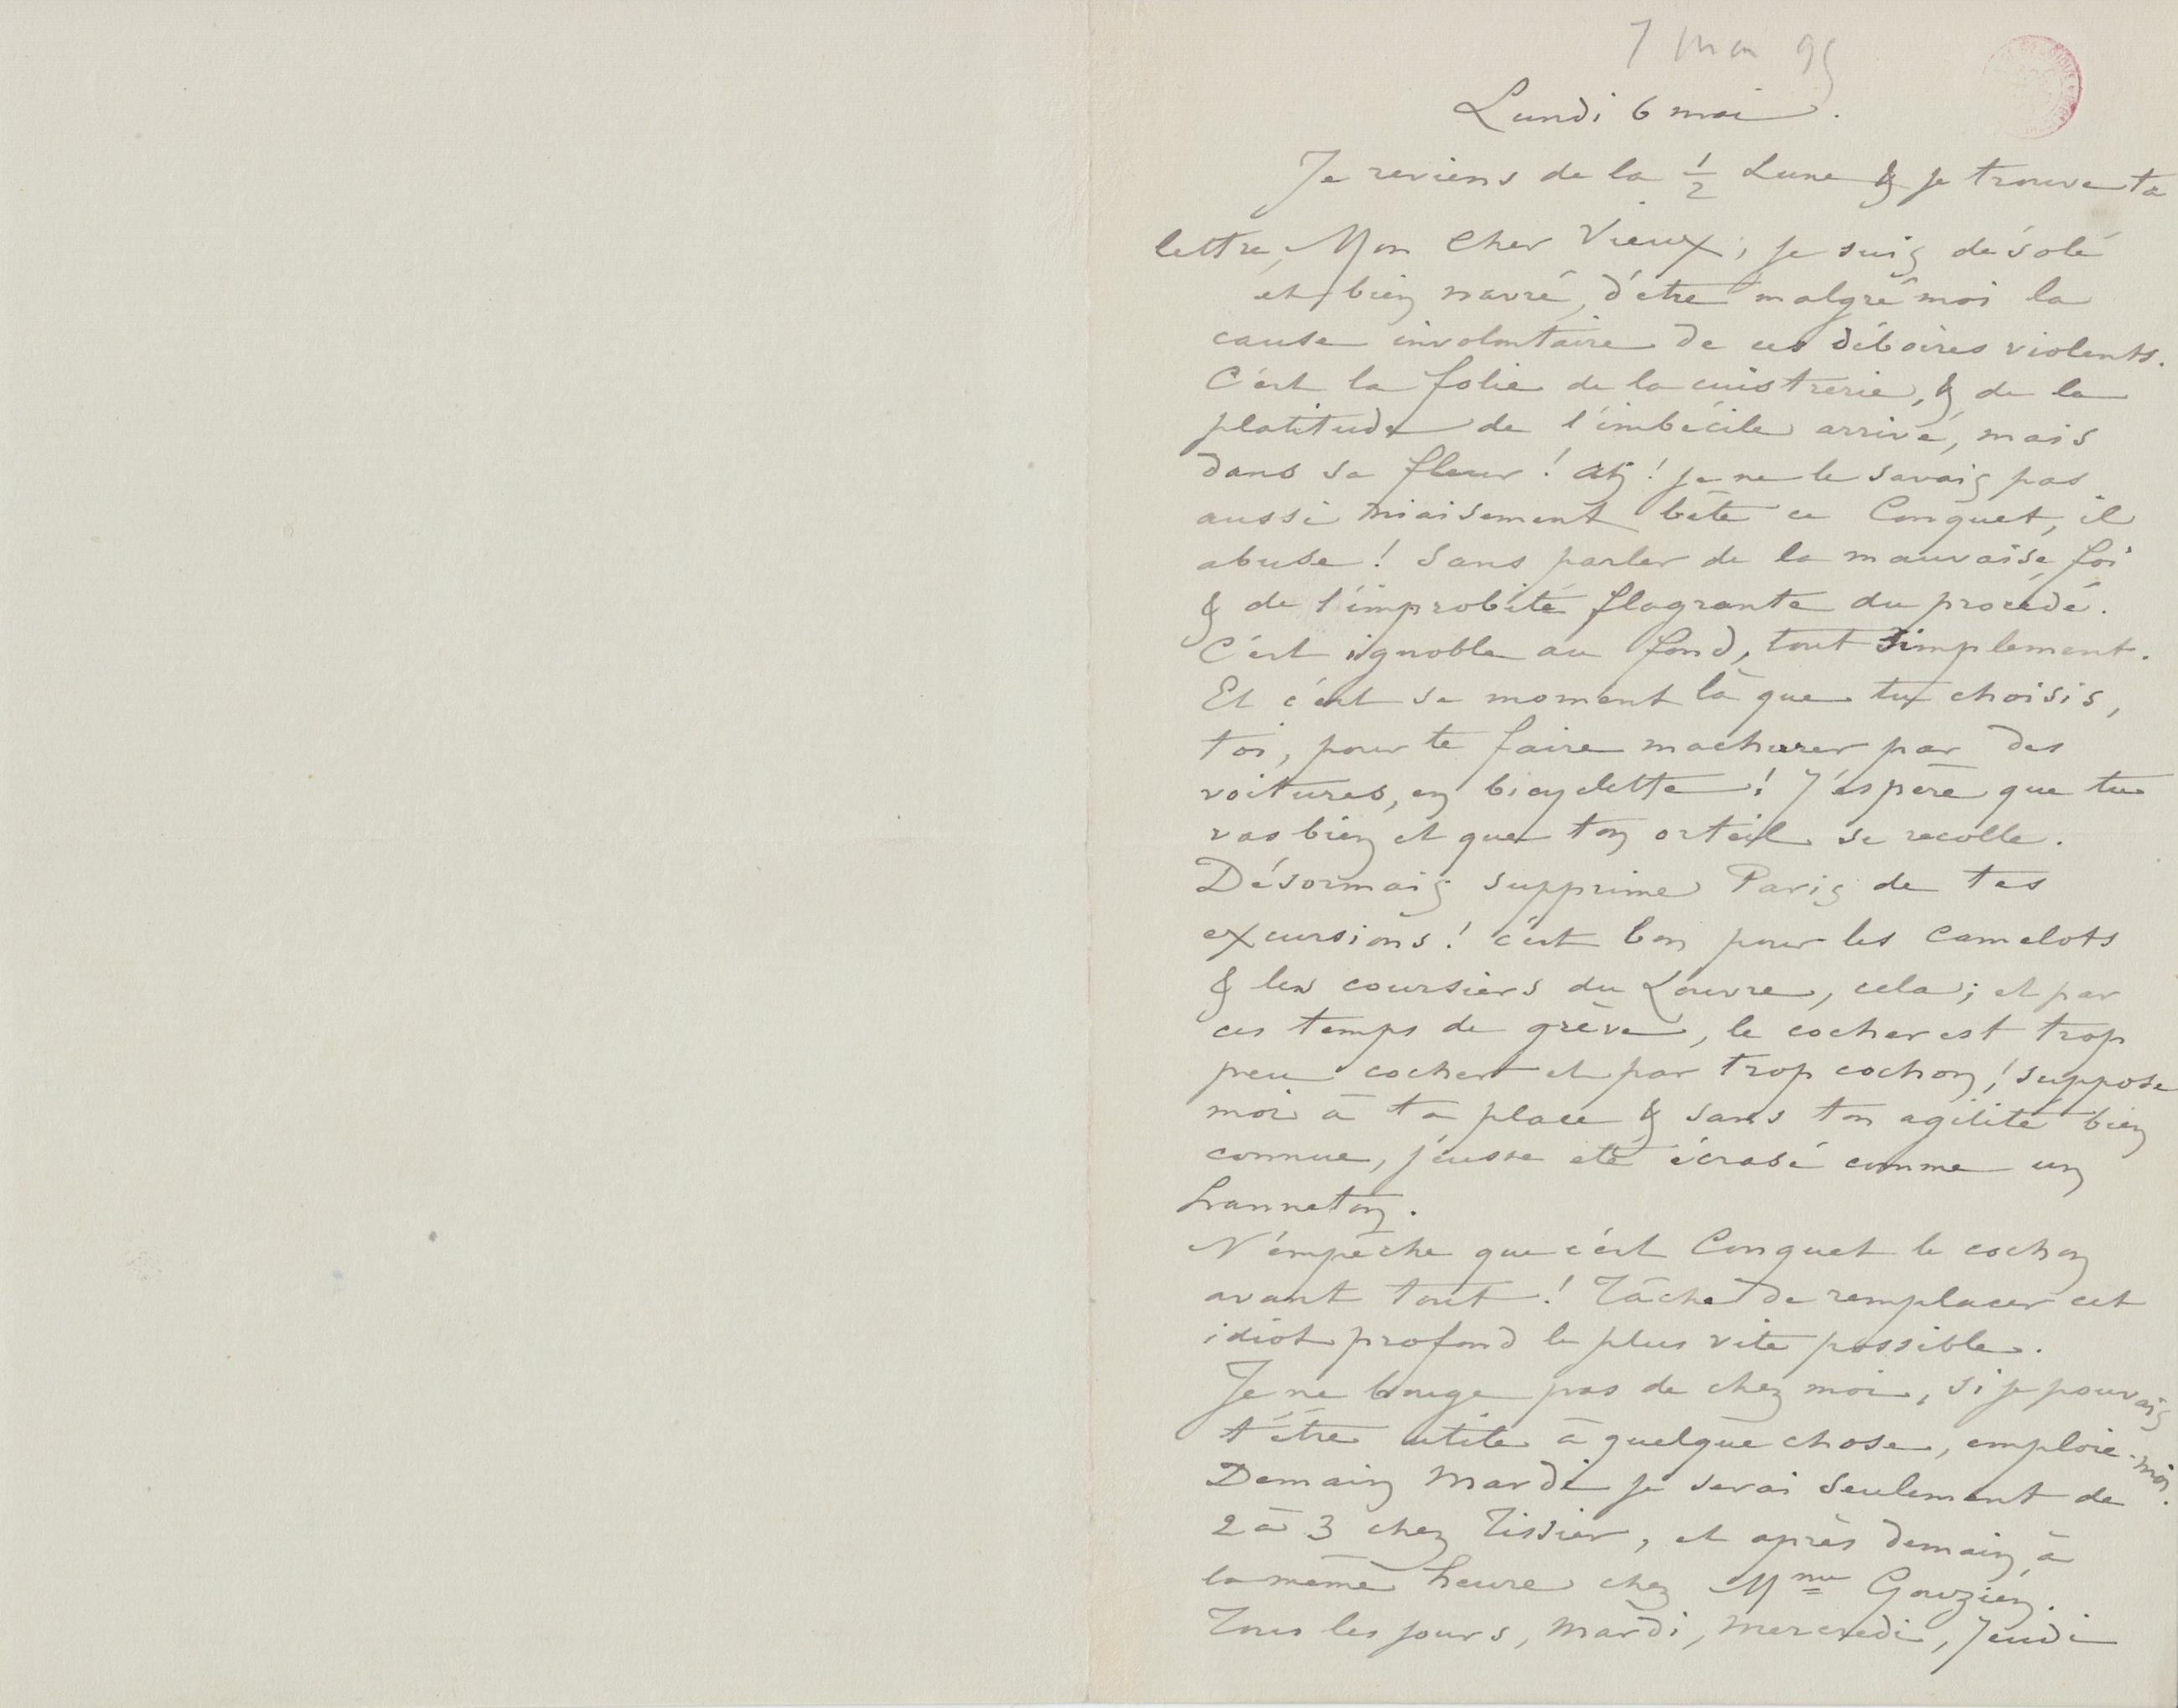 7 mai 95
Lundi 6 mai.
Je reviens de la 1/2 Lune & je trouve ta
lettre, Mon Cher Vieux, je suis désolé
et bien navré, d'être malgré moi la
cause involontaire de ces déboires violents.
C'est la folie de la cuistrerie, & de la
platitude de l'imbécile arrivé, mais
dans sa fleur ! Ah ! je ne le savais pas
aussi niaisement bête ce Conquet, il
abuse ! Sans parler de la mauvaise foi
& de l'improbité flagrante du procédé.
C'est ignoble au fond, tout simplement.
Et c'est se moment là que tu choisis,
toi, pour te faire machurer par des
voitures, en bicyclette ! J'éspère que tu
vas bien et que ton orteil se recolle.
Désormais supprime Paris de tes
excursions ! c'est bon pour les camelots
& les coursiers du Louvre, cela ; et par
ces temps de grève, le cocher est trop
peu cocher et par trop cochon ! suppose
moi à ta place & sans ton agilité bien
connue, j'eusse été écrasé comme un
hanneton.
N'empêche que c'est Conquet le cochon
avant tout ! Tâche de remplacer cet
idiot profond le plus vite possible.
Je ne bouge pas de chez moi, si je pouvais
t'être utile à quelque chose, emploie-moi.
Demain Mardi je serai seulement de
2 à 3 chez Tissier, et après demain à
la même heure chez Mme Gouzien.
Tous les jours, Mardi, Mercredi, Jeudi